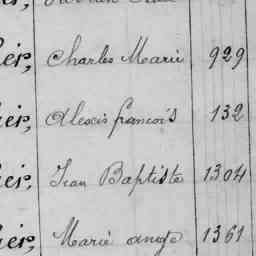 Charles Marie 929
Alexis francois 132
Jean Baptiste 1304
Marie ange 1361